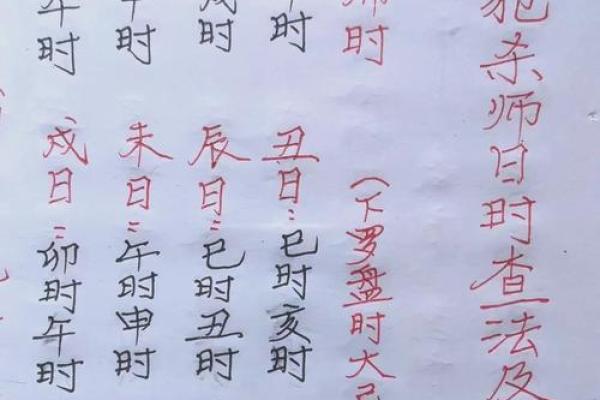 犯杀师日时查法及
时
(下罗盘时大
时
丑日:巳时亥时
时
辰日:巳时丑时
时
未日:午时申时
午时
戌日:卯时午时